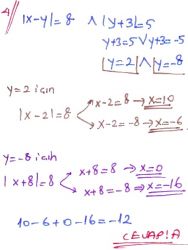 A// |x-y|=8 ∧ |y+3|=5
y+3=5 ∨ y+3=-5
y=2 ∧ y=-8
y=2 için
|x-2|=8
x-2=8 → x=10
x-2=-8 → x=-6
y=-8 için
|x+8|=8
x+8=8 → x=0
x+8=-8 → x=-16
10-6+0-16=-12
CEVAP: A